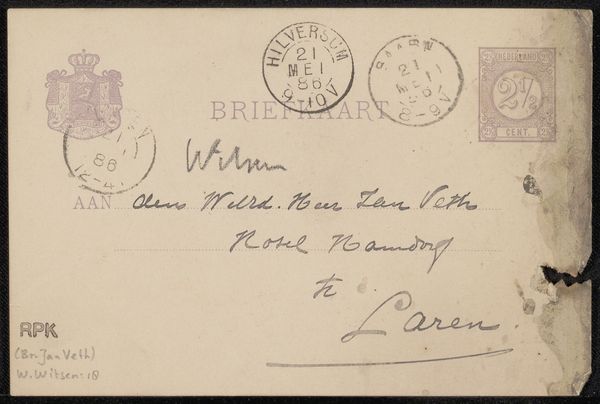 HILVERSUM
21
MEI
86
6-10V
BAARN
21
MEI
86
8-9V
NEDERLAND
2½
CENT.
BRIEFKAART
86
12-4
Witsen
AAN den Welrd. Heer Jan Veth
Hotel Hamdorf
te
Laren.
RPK
(Br. Jan Veth)
W. Witsen: 18